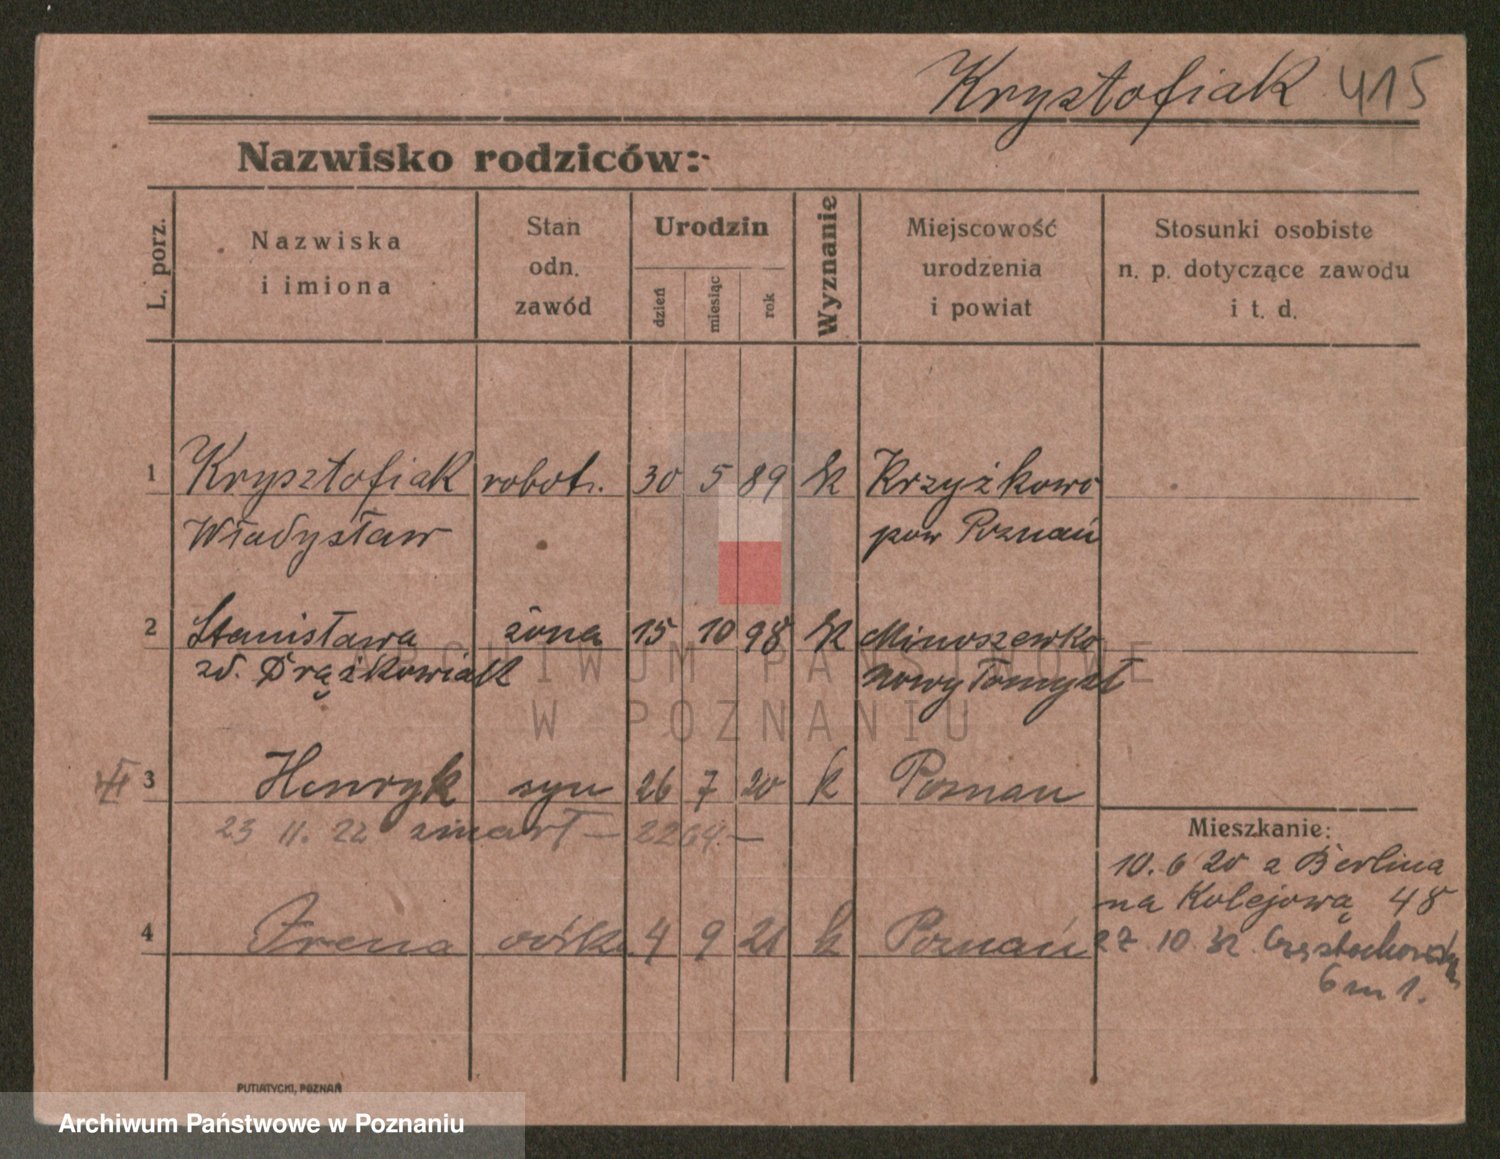 Krysztofiak 415
Nazwisko rodziców:
L. porz.
Nazwiska
i imiona
Stan
odn.
zawód
Urodzin
dzień
miesiąc
rok
Wyznanie
Miejscowość
urodzenia
i powiat
Stosunki osobiste
n. p. dotyczące zawodu
i t. d.
1 Krysztofiak robotn. 30 5 89 k Krzyżkowo
Władysław pow Poznań
2 Stanisława żona 15 10 98 k Minoszewko
zd. Drążkowiak Nowy Tomyśl
3 Henryk syn 26 7 20 k Poznań
23 11. 22 zmarł – 2264 –
4 Irena córka 4 9 21 k Poznań
Mieszkanie:
10. 6 20 z Berlina
na Kolejową 48
27. 10. 32. Częstochowska
6 m 1.
PUTIATYCKI, POZNAŃ
ARCHIWUM PAŃSTWOWE
W POZNANIU
Archiwum Państwowe w Poznaniu